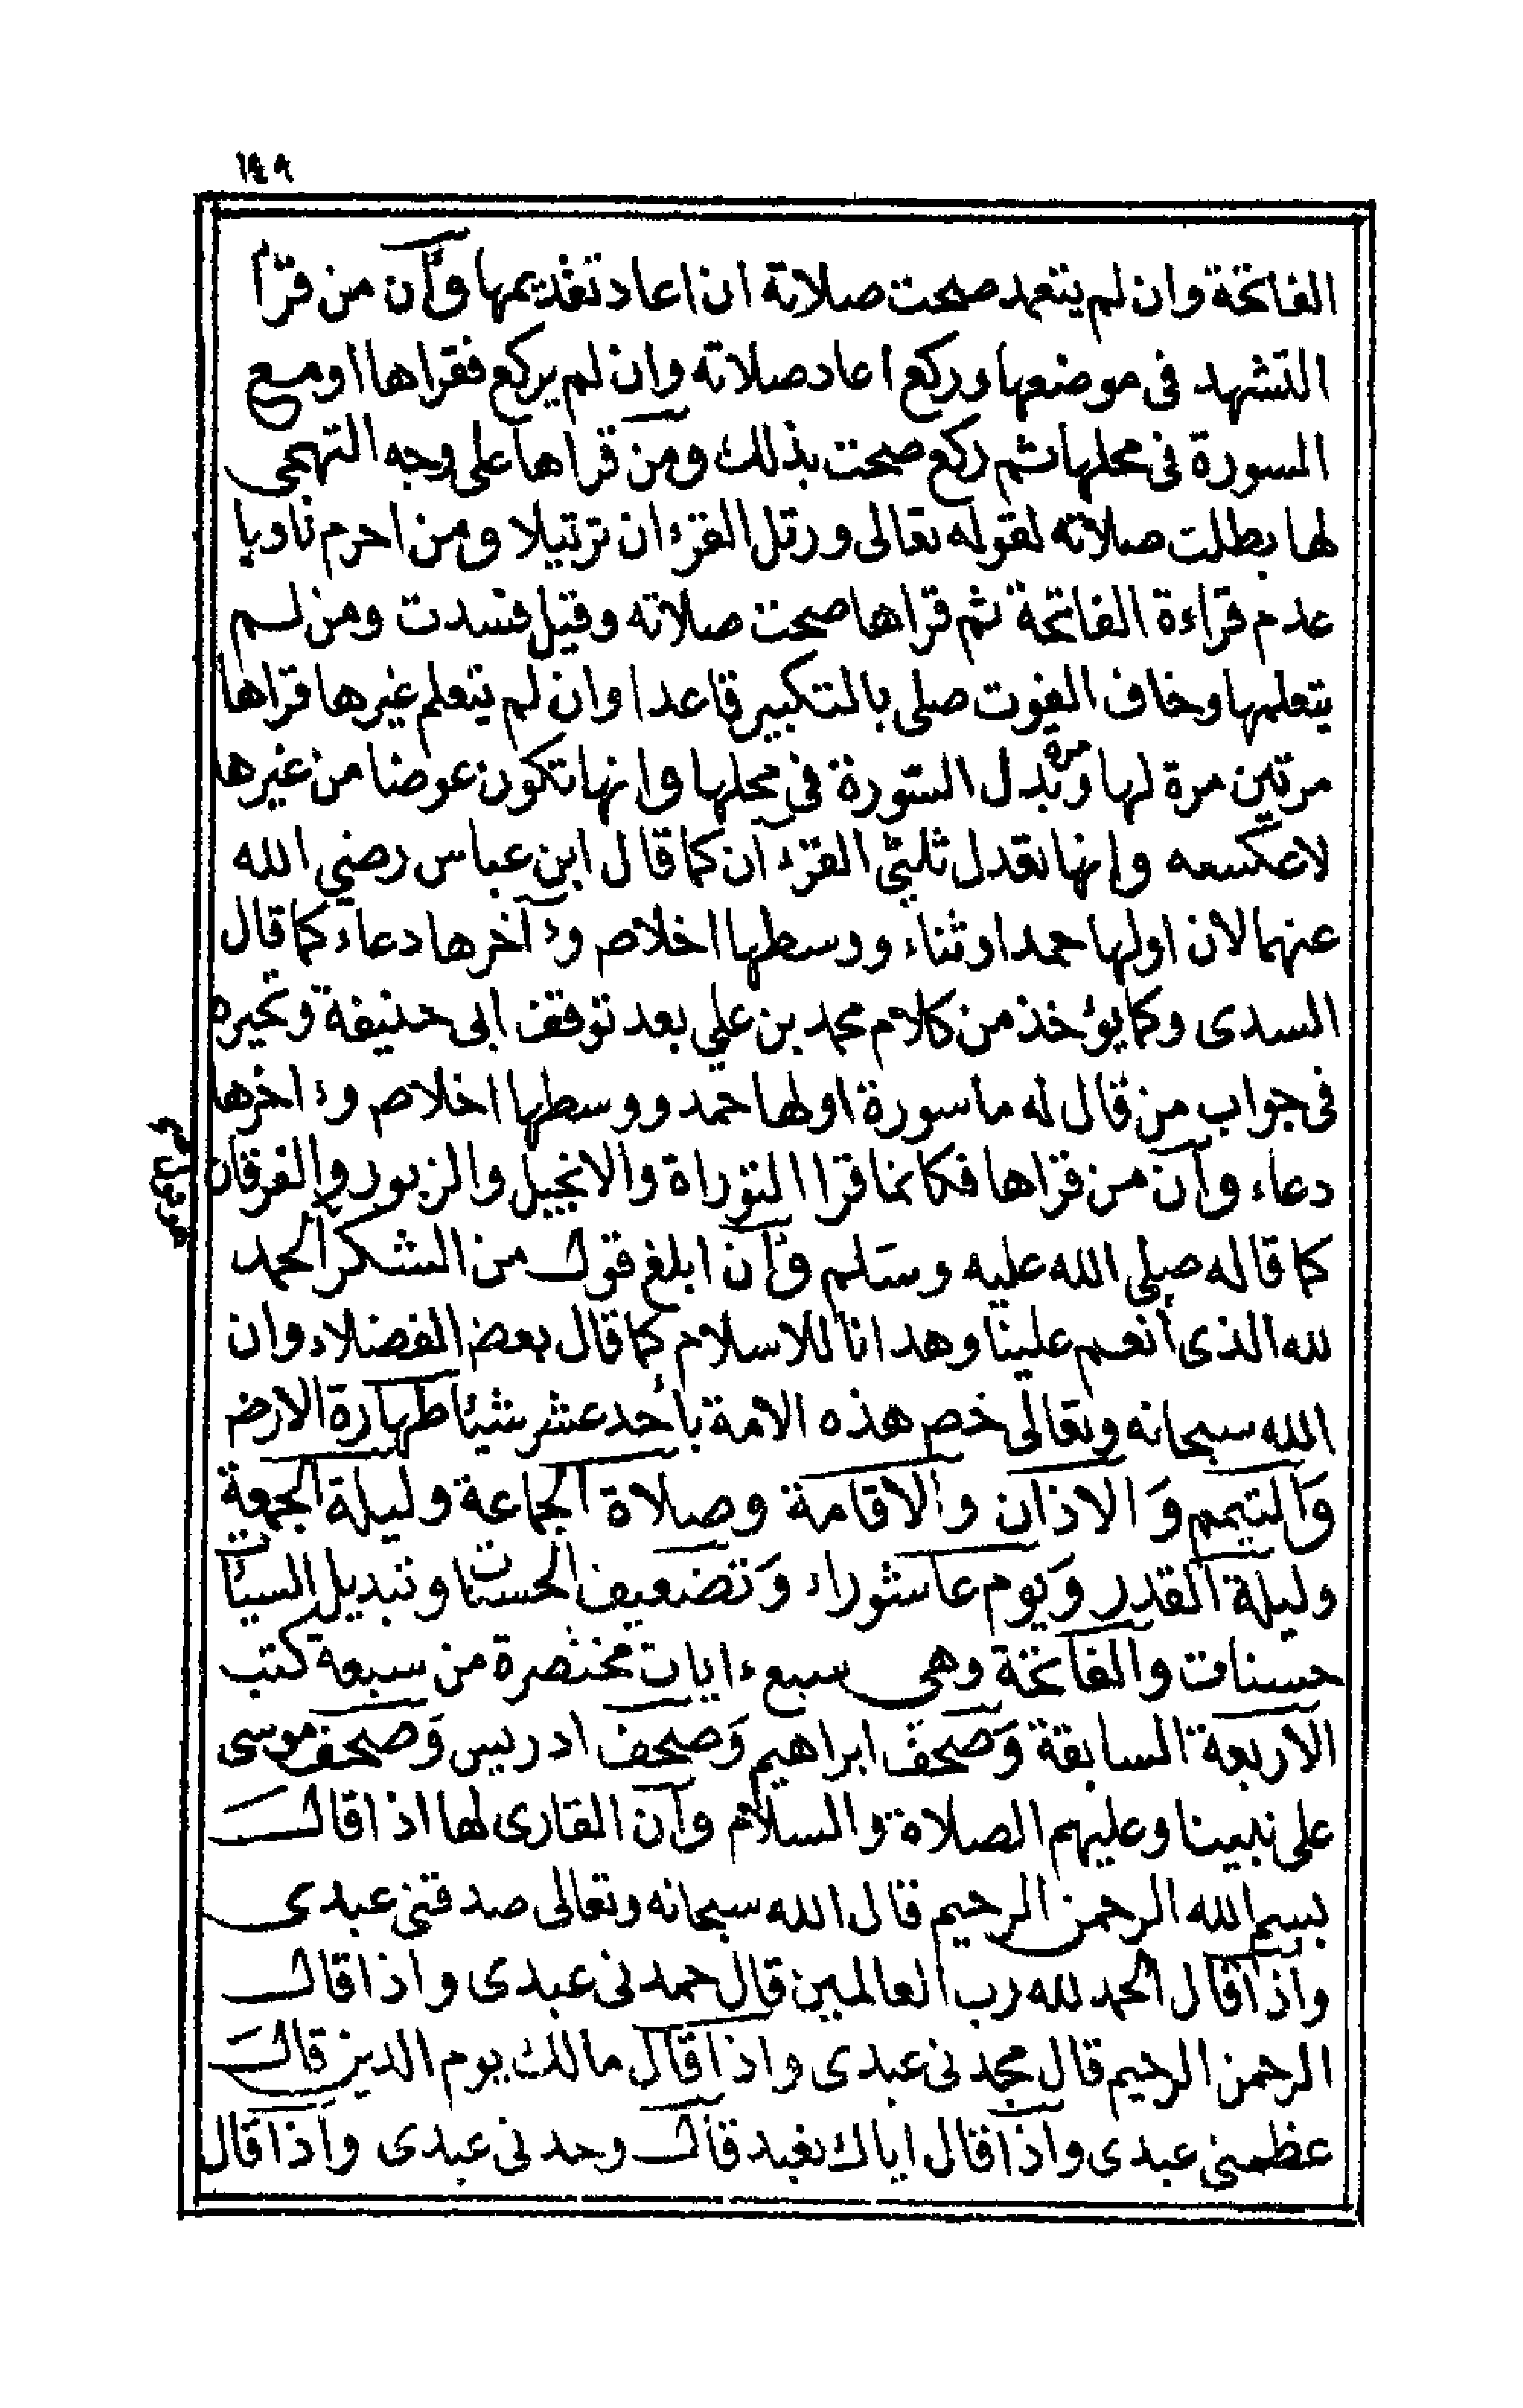 ١٤٩
الفاتحة وان لم يتعمد صحت صلاته ان اعاد تقديمها وأن من قرأ
التشهد فى موضعها وركع اعاد صلاته وان لم يركع فقراها او مع
السورة فى محلها ثم ركع صحت بذلك ومن قراها على وجه التهجى
لها بطلت صلاته لقوله تعالى ورتل القرءان ترتيلا ومن احرم ناويا
عدم قراءة الفاتحة ثم قراها صحت صلاته وقيل فسدت ومن لم
يتعلمها وخاف الفوت صلى بالتكبير قاعدا وان لم يتعلم غيرها قراها
مرتين مرة لها ومرة بدل السورة فى محلها وانها تكون عوضا من غيرها
لا عكسه وانها تعدل ثلثي القرءان كما قال ابن عباس رضي الله
عنهما لان اولها حمدا وثناء ووسطها اخلاص وءاخرها دعاء كما قال
السدى وكما يؤخذ من كلام محمد بن علي بعد توقف ابى حنيفة وتحيره
فى جواب من قال له ما سورة اولها حمد ووسطها اخلاص وءاخرها
دعاء وأن من قراها فكانما قرا التوراة والانجيل والزبور والفرقان
كما قاله صلى الله عليه وسلم وأن ابلغ قول من الشكر الحمد
لله الذى أنعم علينا وهدانا للاسلام كما قال بعض الفضلاء وان
الله سبحانه وتعالى خص هذه الامة بأحد عشر شيئا طهارة الارض
وَالتيمم وَالاذان والاقامة وصلاة الجماعة وليلة الجمعة
وليلة القدر وَيوم عاشوراء وَتضعيف الحسنات وتبديل السيئات
حسنات والفاتحة وهى سبع ءايات مختصرة من سبعة كتب
الاربعة السابقة وَصحف ابراهيم وَصحف ادريس وَصحف موسى
على نبينا وعليهم الصلاة والسلام وأن القارى لها اذا قال
بسم الله الرحمن الرحيم قال الله سبحانه وتعالى صدقنى عبدى
واذا قال الحمد لله رب العالمين قال حمدنى عبدى واذا قال
الرحمن الرحيم قال مجدنى عبدى واذا قال مالك يوم الدين قال
عظمنى عبدى واذا قال اياك نعبد قال وحدنى عبدى واذا قال